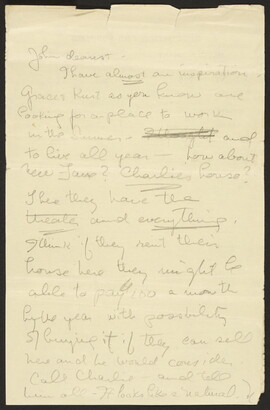 John dearest -
I have almost an inspiration.
Graces Kurt as you know are
looking for a place to work
in the summer - and
to live all year - how about
New Jane? Charlie's house?
I see they have the
theatre and everything.
I think if they rent their
house here they might be
able to pay 150 a month
by the year with possibility
of buying it if they can sell
here and he would consider.
Call Charlie and tell
him all - It looks like a natural.